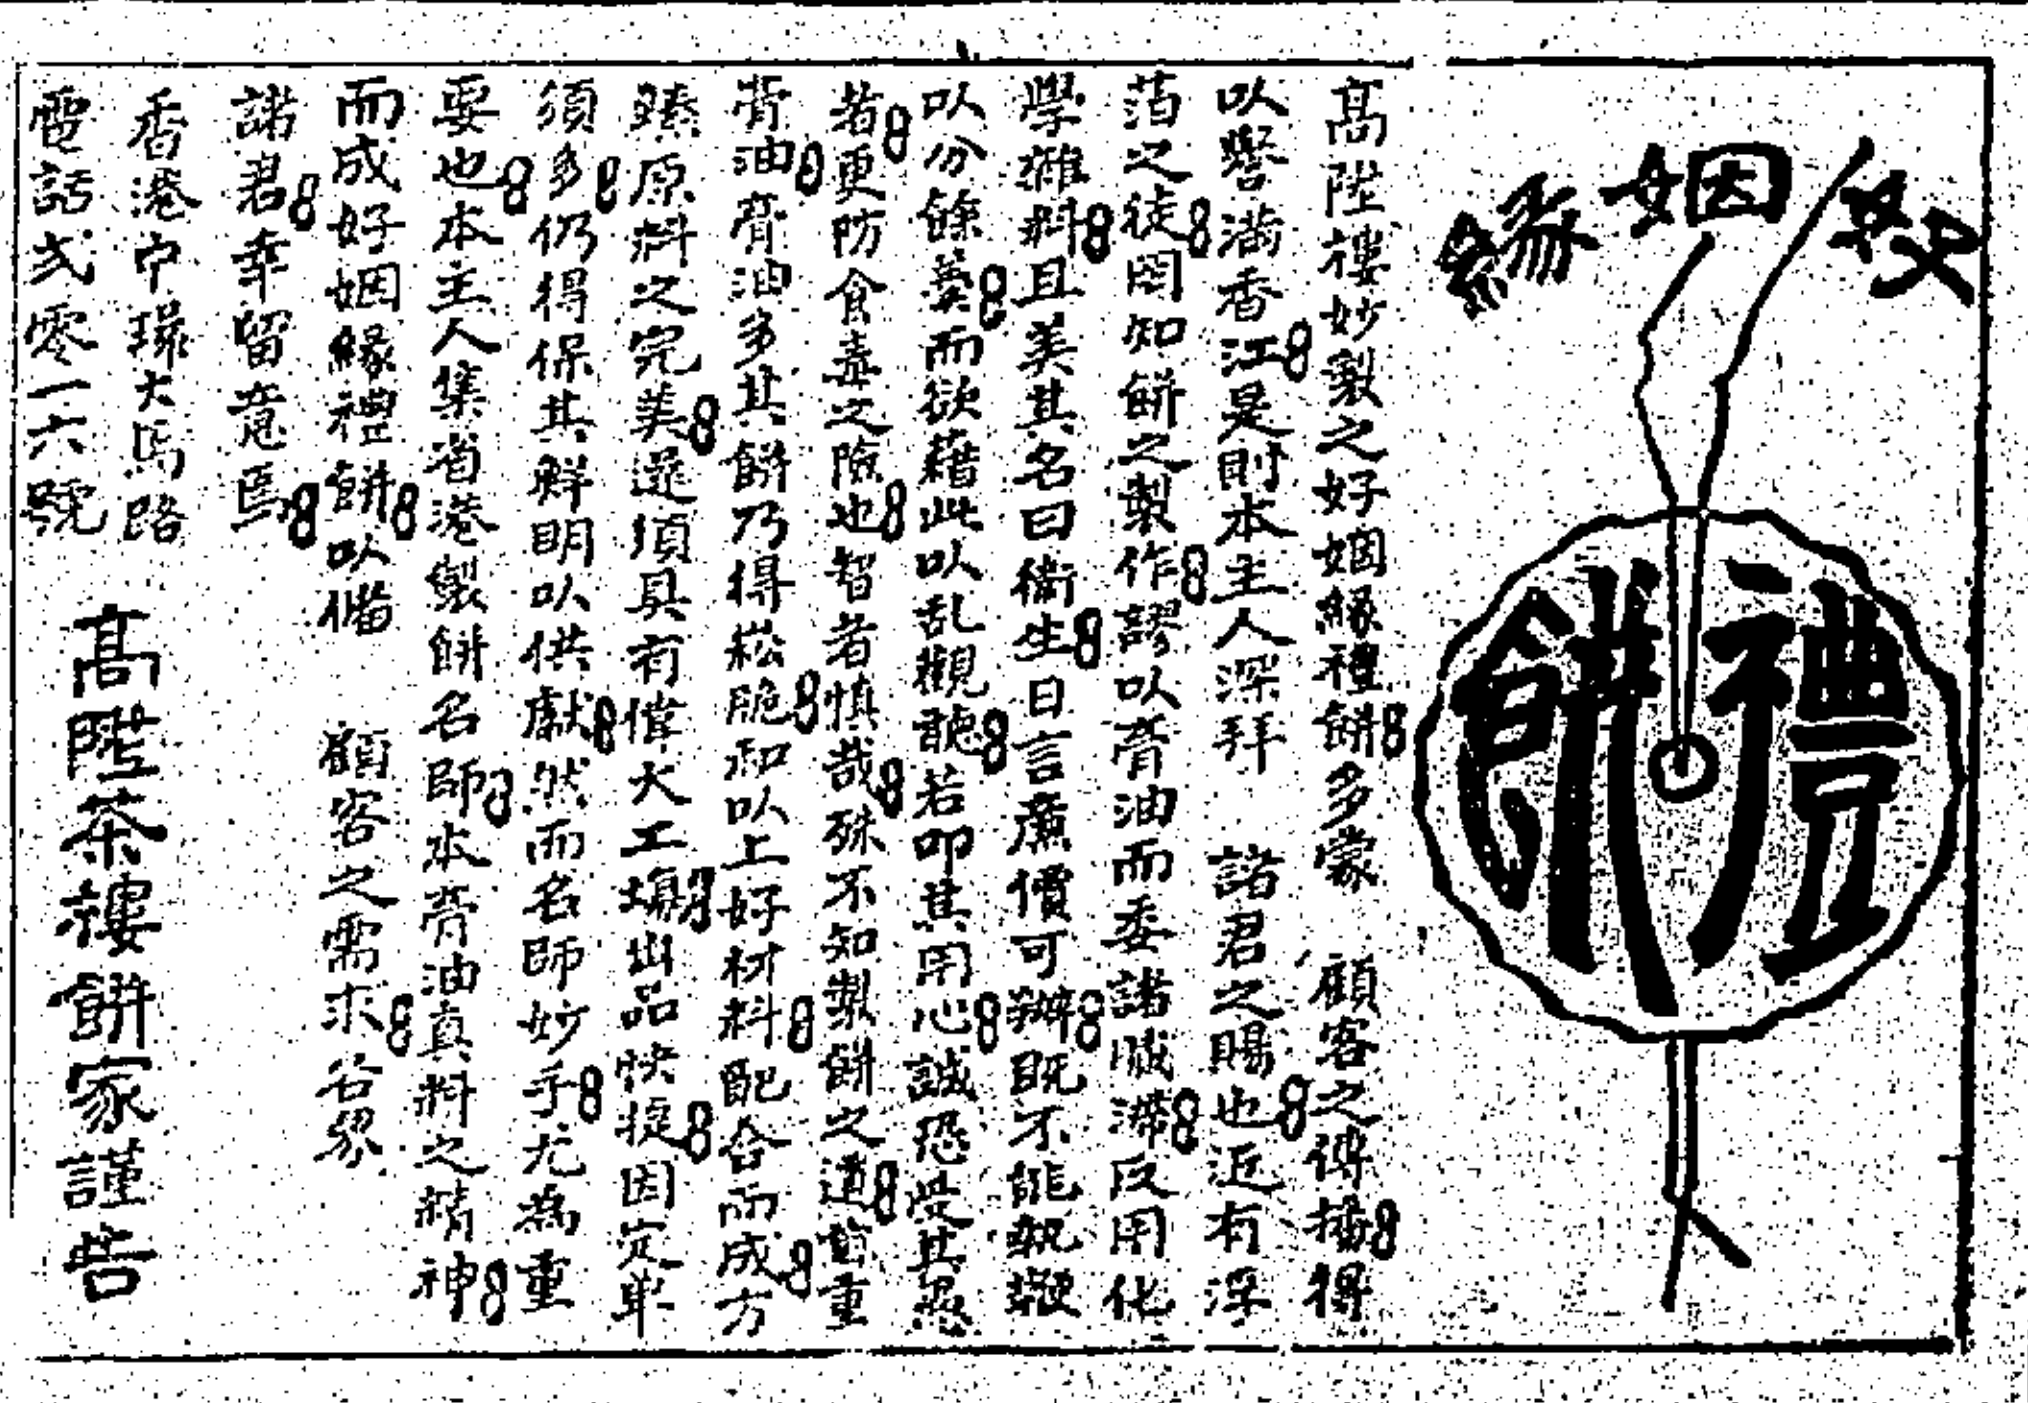 好姻緣
禮餅
高陞樓妙製之好姻緣禮餅多蒙 顧客之傳揚得
以譽滿香江是則本主人深拜 諸君之賜也近有浮
萡之徒罔知餅之製作謬以膏油而委諸膩滯反用化
學雜料且美其名曰衛生日言廉價可辦既不能執鞭
以分餘羮而欲藉此以乱觀聽若叩其用心誠恐受其愚
者更防食毒之險也智者慎哉殊不知製餅之道首重
膏油膏油多其餅乃得崧脆和以上好材料配合而成方
臻原料之完美還須具有偉大工塲出品快捷因定单
須多仍得保其鮮明以供獻然而名師妙手尤為重
要也本主人集省港製餅名師本膏油真料之精神
而成好姻緣禮餅以備 顧客之需求各界
諸君幸留意焉
香港中環大馬路
電話弍零一六號
高陞茶樓餅家謹告